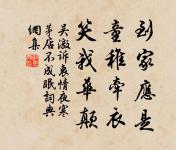 到家應是
童稚牽衣
笑我華顛
吳激訴衷情夜寒
茅店不成眠詞典
網集